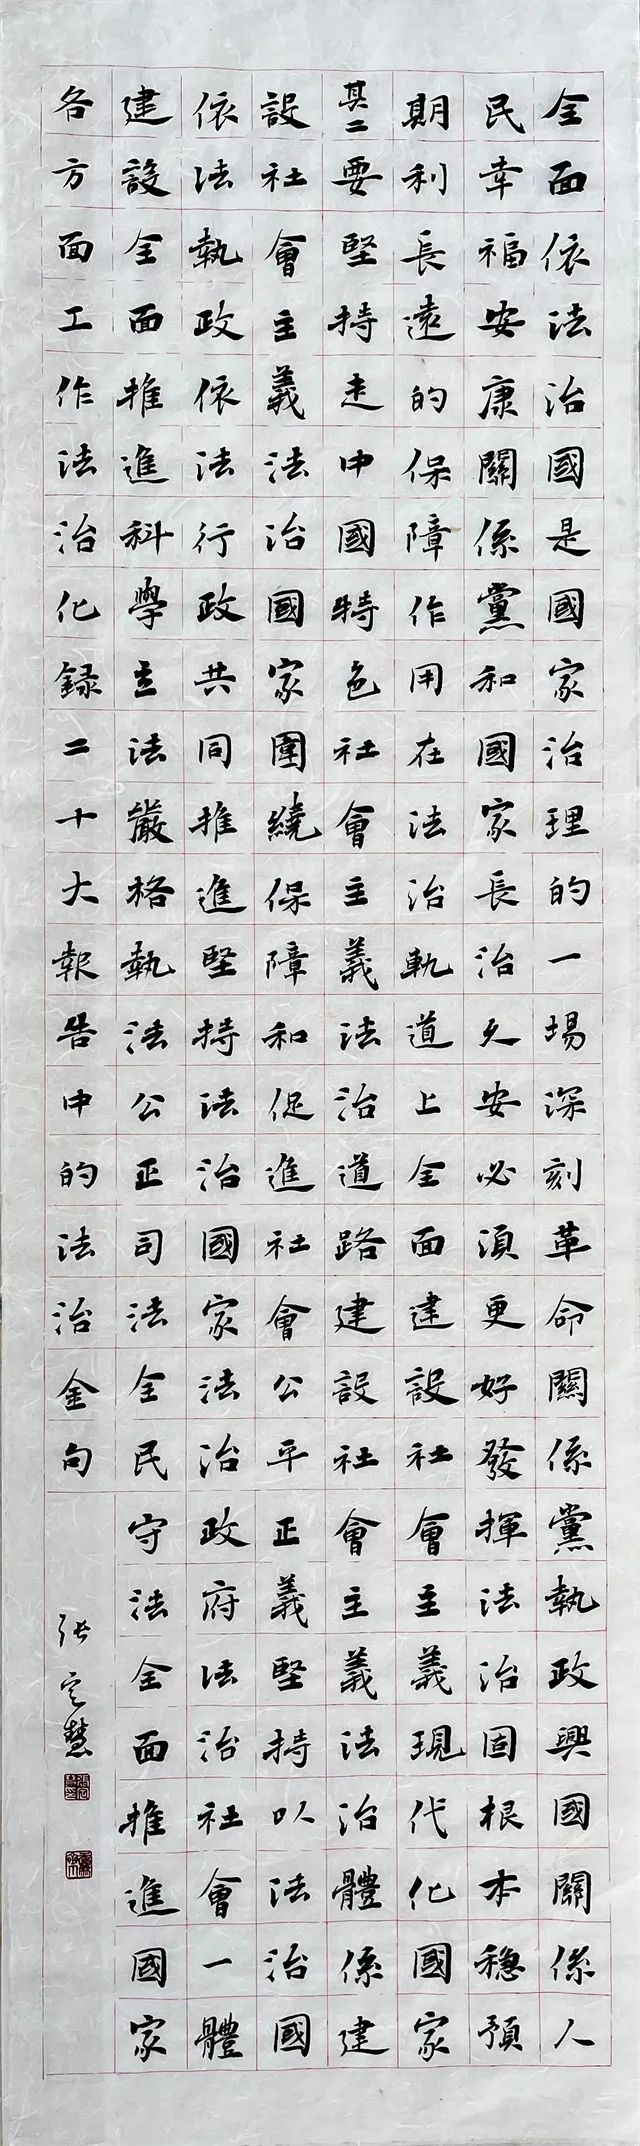 全面依法治國是國家治理的一場深刻革命關係黨執政興國關係人
民幸福安康關係黨和國家長治久安必須更好發揮法治固根本穩預
期利長遠的保障作用在法治軌道上全面建設社會主義現代化國家
其二要堅持走中國特色社會主義法治道路建設社會主義法治體係建
設社會主義法治國家圍繞保障和促進社會公平正義堅持以法治國
依法執政依法行政共同推進堅持法治國家法治政府法治社會一體
建設全面推進科學立法嚴格執法公正司法全民守法全面推進國家
各方面工作法治化録二十大報告中的法治金句
張定慧